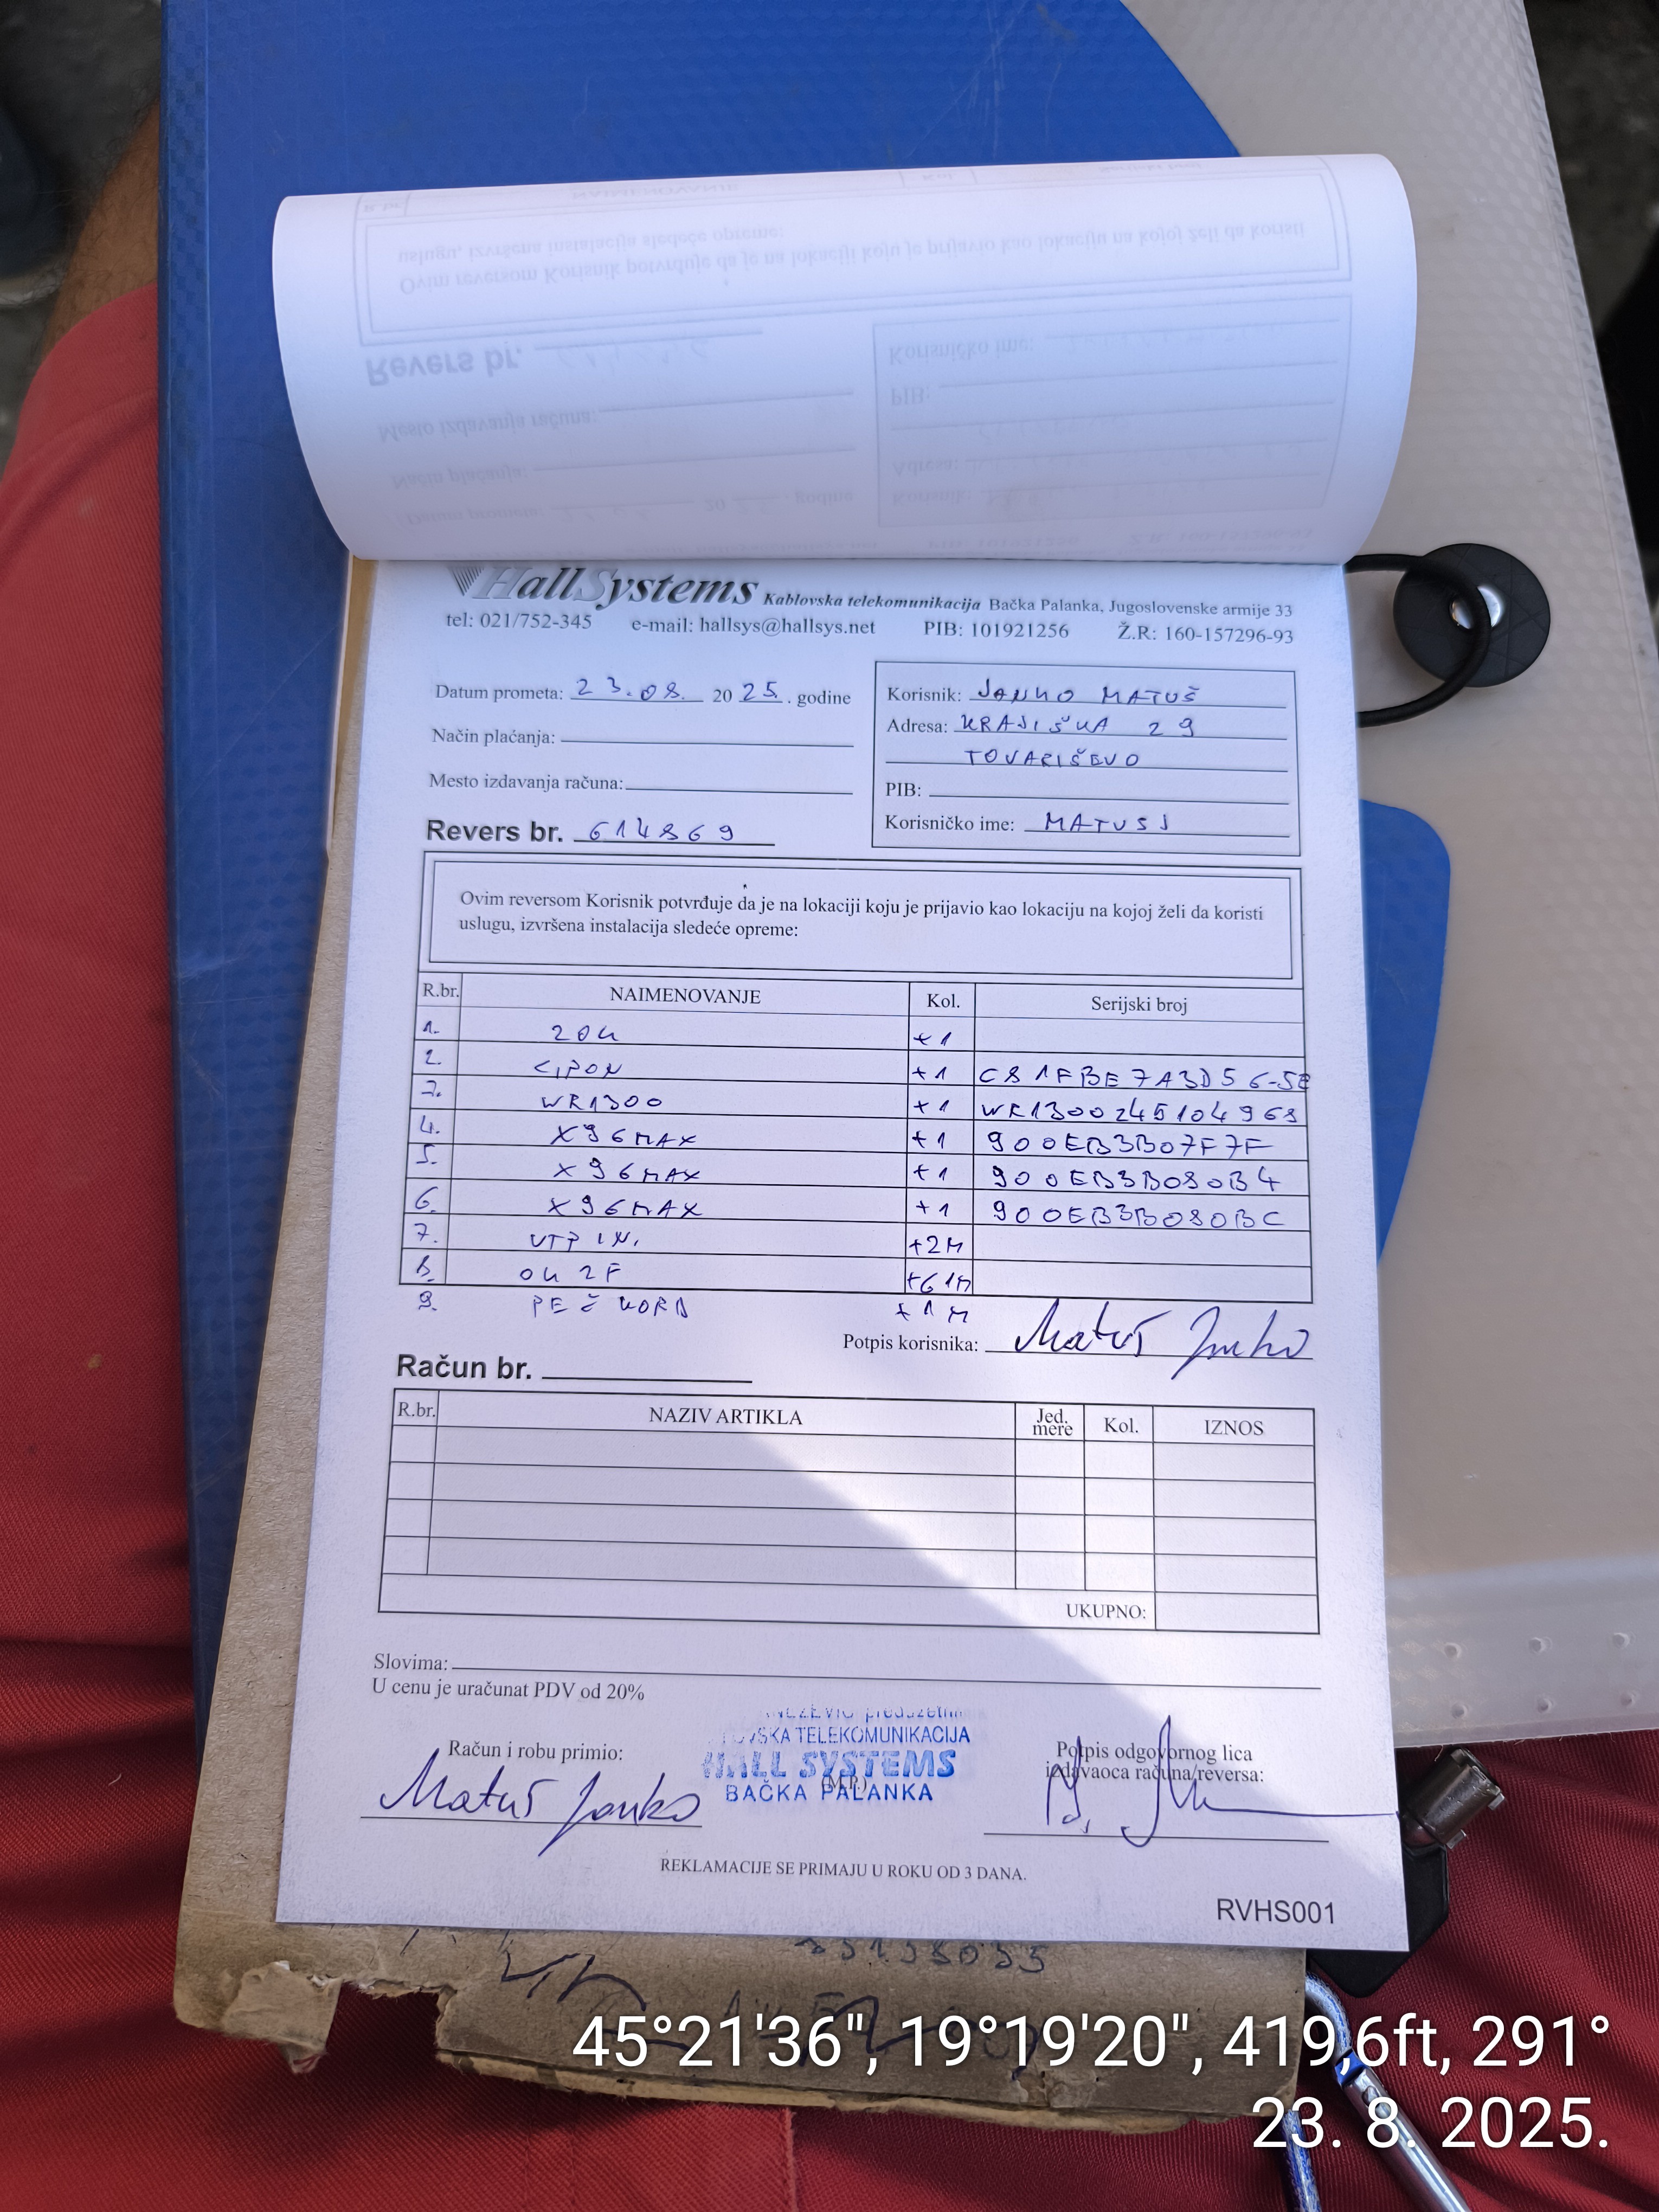 HallSystems Kablovska telekomunikacija Bačka Palanka, Jugoslovenske armije 33
tel: 021/752-345 e-mail: hallsys@hallsys.net PIB: 101921256 Ž.R: 160-157296-93
Datum prometa: 23.08. 2025. godine
Način plaćanja:
Mesto izdavanja računa:
Revers br. 614869
Korisnik: JANKO MATUŠ
Adresa: KRAJIŠKA 29
TOVARIŠEVO
PIB:
Korisničko ime: MATUSJ
Ovim reversom Korisnik potvrđuje da je na lokaciji koju je prijavio kao lokaciju na kojoj želi da koristi
uslugu, izvršena instalacija sledeće opreme:
R.br. NAIMENOVANJE Kol. Serijski broj
1. ZOK +1
2. CIPON +1 C81FBE7A3D56-5E
3. WR1300 +1 WR1300245104968
4. X96MAX +1 900EB3B07F7F
5. X96MAX +1 900EB3B080B4
6. X96MAX +1 900EB3B080BC
7. UTP UN. +2M
8. OK 2F +61M
9. PEČ KORD +1M
Potpis korisnika: Matuš Janko
Račun br.
R.br. NAZIV ARTIKLA Jed. mere Kol. IZNOS
UKUPNO:
Slovima:
U cenu je uračunat PDV od 20%
TELEKOMUNIKACIJA
HALL SYSTEMS
(M.P.)
BAČKA PALANKA
Račun i robu primio:
Matuš Janko
Potpis odgovornog lica
izdavaoca računa/reversa:
REKLAMACIJE SE PRIMAJU U ROKU OD 3 DANA.
RVHS001
45°21'36", 19°19'20", 419,6ft, 291°
23. 8. 2025.